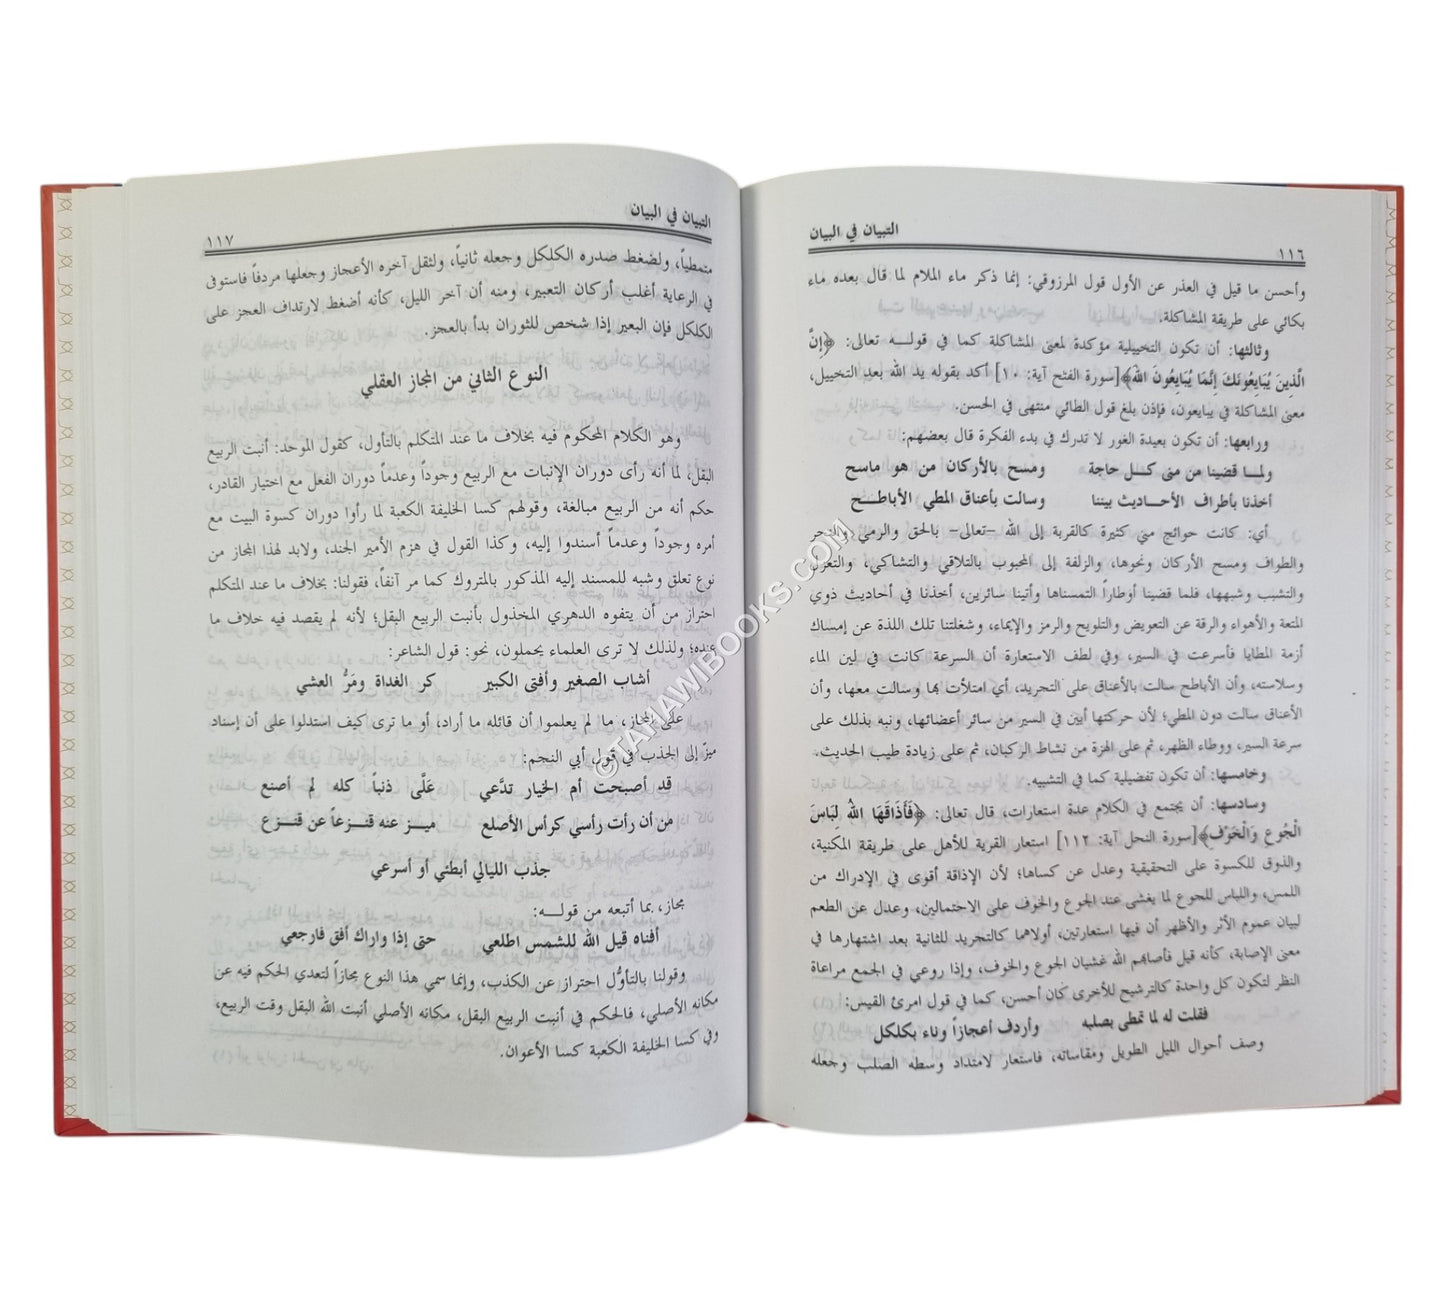 التبيان في البيان
١١٦
وأحسن ما قيل في العذر عن الأول قول المرزوقي: إنما ذكر ماء الملام لما قال بعده ماء
بكائي على طريقة المشاكلة.
وثالثها: أن تكون التخييلية مؤكدة لمعنى المشاكلة كما في قولـه تعالى: ﴿إِنَّ
الَّذِينَ يُبَايِعُونَكَ إِنَّمَا يُبَايِعُونَ اللهَ﴾[سورة الفتح آية: ١٠] أكد بقوله يد الله بعد التخييل،
معنى المشاكلة في يبايعون، فإذن بلغ قول الطائي منتهى في الحسن.
ورابعها: أن تكون بعيدة الغور لا تدرك في بدء الفكرة قال بعضهم:
ولمـا قضينا من منى كـل حاجة ومسح بالأركان من هو ماسح
أخذنا بأطراف الأحـاديث بيننا وسالت بأعناق المطي الأباطـح
أي: كانت حوائج مني كثيرة كالقربة إلى الله –تعالى– بالحق والرمي والنحر
والطواف ومسح الأركان ونحوها، والزلفة إلى المحبوب بالتلاقي والتشاكي، والتغزل
والتشبب وشبهها، فلما قضينا أوطاراً التمسناها وأتينا سائرين، أخذنا في أحاديث ذوي
المتعة والأهواء والرقة عن التعويض والتلويح والرمز والإيماء، وشغلتنا تلك اللذة عن إمساك
أزمة المطايا فأسرعت في السير، وفي لطف الاستعارة أن السرعة كانت في لين الماء
وسلاسته، وأن الأباطح سالت بالأعناق على التجريد، أي امتلأت بها وسالت معها، وأن
الأعناق سالت دون المطي؛ لأن حركتها أبين في السير من سائر أعضائها، ونبه بذلك على
سرعة السير، ووطاء الظهر، ثم على الهزة من نشاط الركبان، ثم على زيادة طيب الحديث.
وخامسها: أن تكون تفضيلية كما في التشبيه.
وسادسها: أن يجتمع في الكلام عدة استعارات، قال تعالى: ﴿فَأَذَاقَهَا اللهُ لِبَاسَ
الْجُوعِ وَالْخَوْفِ﴾[سورة النحل آية: ١١٢] استعار القرية للأهل على طريقة المكنية،
والذوق للكسوة على التحقيقية وعدل عن كساها؛ لأن الإذاقة أقوى في الإدراك من
اللمس، واللباس للجوع لما يغشى عند الجوع والخوف على الاحتمالين، وعدل عن الطعم
لبيان عموم الأثر والأظهر أن فيها استعارتين، أولاهما كالتجريد للثانية بعد اشتهارها في
معنى الإصابة، كأنه قيل فأصابهم الله غشيان الجوع والخوف، وإذا روعي في الجمع مراعاة
النظر لتكون كل واحدة كالترشيح للأخرى كان أحسن، كما في قول امرئ القيس:
فقلت له لما تمطى بصلبه وأردف أعجازاً وناء بكلكل
وصف أحوال الليل الطويل ومقاساته، فاستعار لامتداد وسطه الصلب وجعله
التبيان في البيان
١١٧
متمطياً، ولضغط صدره الكلكل وجعله ثانياً، ولثقل آخره الأعجاز وجعلها مردفاً فاستوفى
في الرعاية أغلب أركان التعبير، ومنه أن آخر الليل، كأنه أضغط لارتداف العجز على
الكلكل فإن البعير إذا شخص للثوران بدأ بالعجز.
النوع الثاني من المجاز العقلي
وهو الكلام المحكوم فيه بخلاف ما عند المتكلم بالتأول، كقول الموحد: أنبت الربيع
البقل، لما أنه رأى دوران الإنبات مع الربيع وجوداً وعدماً دوران الفعل مع اختيار القادر،
حكم أنه من الربيع مبالغة، وقولهم كسا الخليفة الكعبة لما رأوا دوران كسوة البيت مع
أمره وجوداً وعدماً أسندوا إليه، وكذا القول في هزم الأمير الجند، ولابد لهذا المجاز من
نوع تعلق وشبه للمسند إليه المذكور بالمتروك كما مر آنفاً، فقولنا: بخلاف ما عند المتكلم
احتراز من أن يتفوه الدهري المخذول بأنبت الربيع البقل؛ لأنه لم يقصد فيه خلاف ما
عنده؛ ولذلك لا ترى العلماء يحملون، نحو: قول الشاعر:
أشاب الصغير وأفنى الكبير كر الغداة ومَرُّ العشي
على المجاز، ما لم يعلموا أن قائله ما أراد، أو ما ترى كيف استدلوا على أن إسناد
ميزّ إلى الجذب في قول أبي النجم:
قد أصبحت أم الخيار تدّعي علَّى ذنباً كله لم أصنع
من أن رأت رأسي كرأس الأصلع ميـز عنه قنـزعاً عن قنـزع
جذب الليالي أبطئي أو أسرعي
مجاز، بما أتبعه من قولـه:
أفناه قيل الله للشمس اطلعي حتى إذا واراك أفق فارجعي
وقولنا بالتأوُّل احتراز عن الكذب، وإنما سمي هذا النوع مجازاً لتعدي الحكم فيه عن
مكانه الأصلي، فالحكم في أنبت الربيع البقل، مكانه الأصلي أنبت الله البقل وقت الربيع،
وفي كسا الخليفة الكعبة كسا الأعوان.
©TAHAWIBOOKS.COM